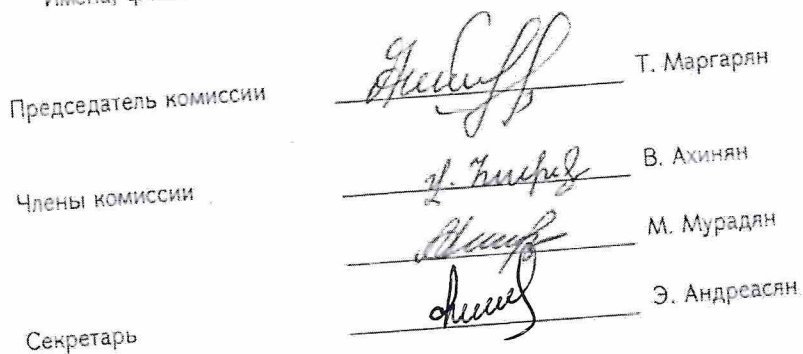 Председатель комиссии Т. Маргарян
Члены комиссии В. Ахинян
М. Мурадян
Секретарь Э. Андреасян